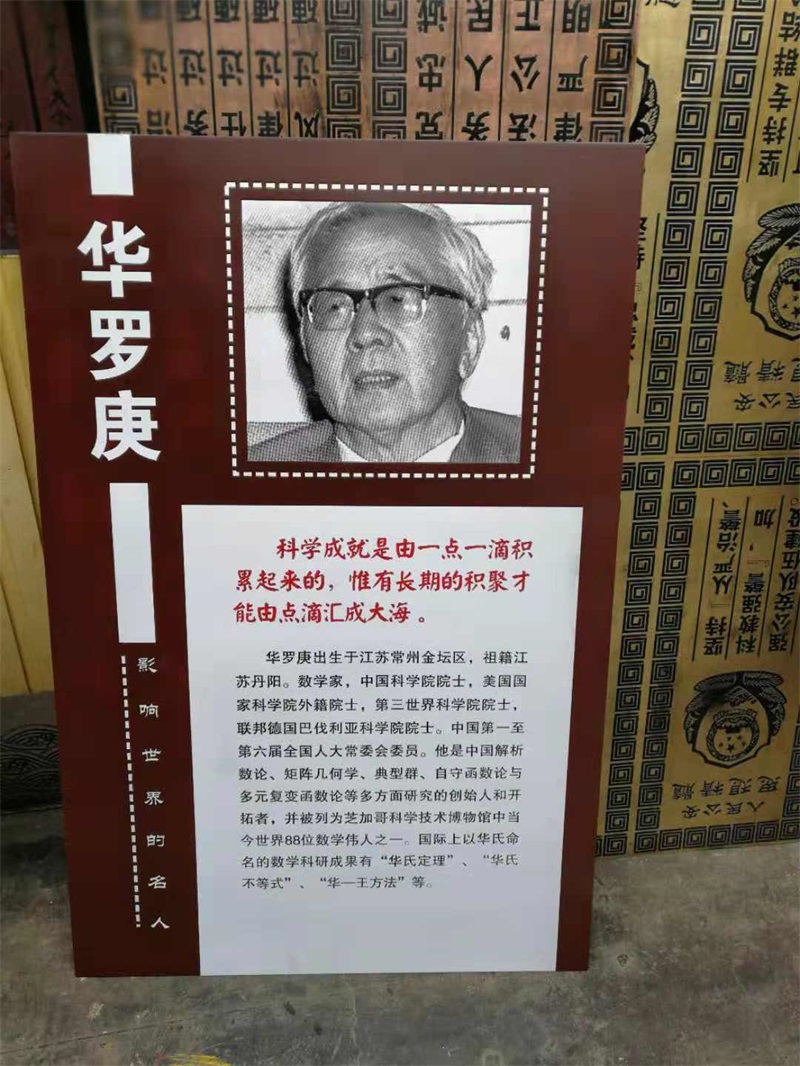 华罗庚
影响世界的名人
科学成就是由一点一滴积
累起来的，惟有长期的积聚才
能由点滴汇成大海 。
华罗庚出生于江苏常州金坛区，祖籍江
苏丹阳。数学家，中国科学院院士，美国国
家科学院外籍院士，第三世界科学院院士，
联邦德国巴伐利亚科学院院士。中国第一至
第六届全国人大常委会委员。他是中国解析
数论、矩阵几何学、典型群、自守函数论与
多元复变函数论等多方面研究的创始人和开
拓者，并被列为芝加哥科学技术博物馆中当
今世界88位数学伟人之一。国际上以华氏命
名的数学科研成果有“华氏定理”、“华氏
不等式”、“华—王方法”等。
党忠诚
务人民
法公正
律严明
坚持专群结
人民公安
思想精髓